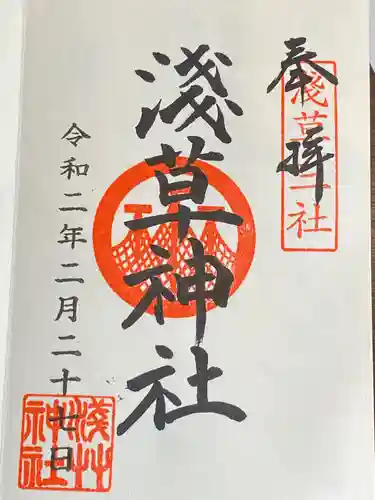 奉拝
淺草神社
淺草神社
令和二年二月二十七日
淺草神社